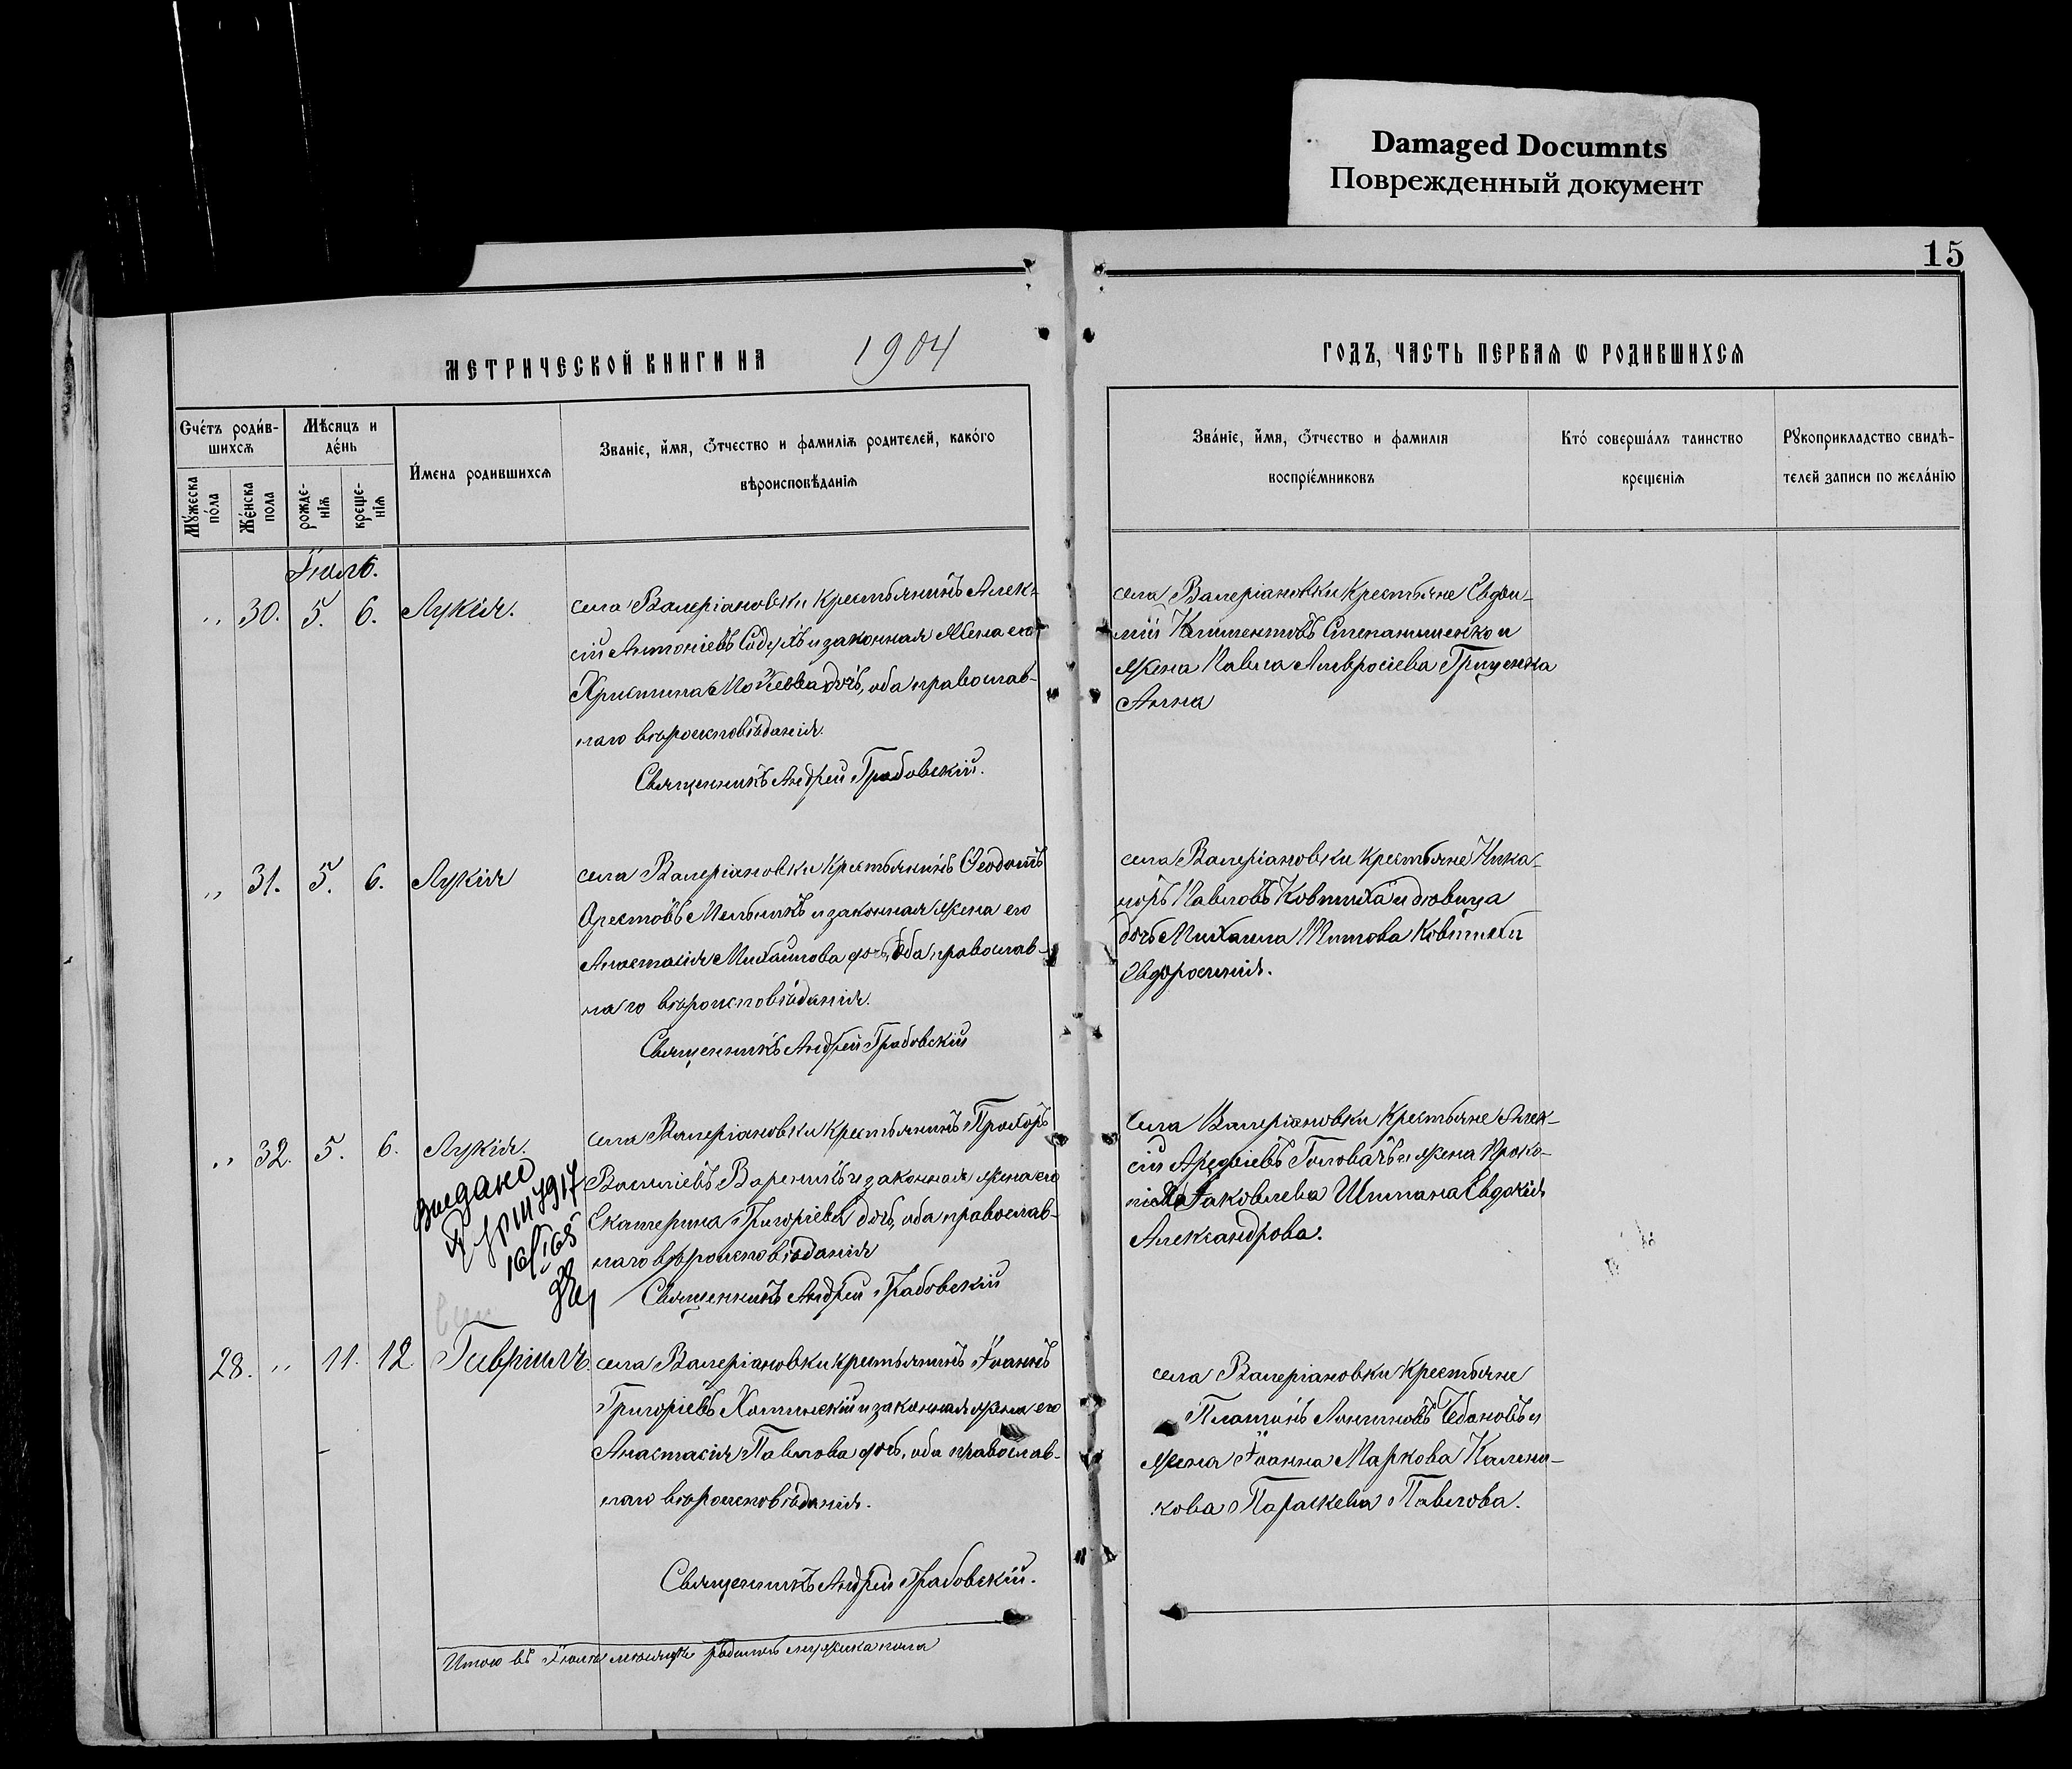 Damaged Documnts
Поврежденный документ
15
МЕТРИЧЕСКОЙ КНИГИ НА 1904
ГОДЪ, ЧАСТЬ ПЕРВАЯ Ѡ РОДИВШИХСѦ
Счéтъ роди́в-
шихсѧ
Мѣсяцъ и
дéнь
И́мена родившихсѧ
Званіе, и́мя, ѻ́тчество и фамиліѧ родителей, како́го
вѣроисповѣданіѧ
Му́жеска
по́ла
Же́нска
пола
рожде-
ніѧ
креще-
ніѧ
Зва́ніе, и́мя, ѻ́тчество и фамиліѧ
воспріе́мниковъ
Кто́ соверша́лъ таинство
крещеніѧ
Рꙋкоприкладство свидѣ-
телей записи по жела́нію
Іюль.
,, 30. 5. 6. Лукія.
села Валеріановки крестьянинъ Алек-
сій Антоніевъ и законная жена его
Христина дочь, оба православ-
наго вѣроисповѣданія.
Священникъ Андрей Грабовскій.
села Валеріановки крестьяне Евфи-
мій Климентовъ Степаниченко и
жена Павла Амвросіева Гриценка
Анна
,, 31. 5. 6. Лукія
села Валеріановки крестьянинъ Ѳеодотъ
Орестовъ Мельникъ и законная жена его
Анастасія Михаилова дочь, оба православ-
наго вѣроисповѣданія.
Священникъ Андрей Грабовскій
села Валеріановки крестьяне Ника-
норъ Павловъ Ковтиха и дѣвица
дочь Михаила Титова Ковтихи
Евфросинія.
,, 32. 5. 6. Лукія.
села Валеріановки крестьянинъ Прохоръ
Василіевъ Вареникъ и законная жена его
Екатерина Григоріева дочь, оба православ-
наго вѣроисповѣданія
Священникъ Андрей Грабовскій
села Валеріановки крестьяне Алек-
сій Головачъ и жена Проко-
пія Іаковлева Шпитана Евдокія
Александрова.
Выдано
28. ,, 11. 12 Гавріилъ
села Валеріановки крестьянинъ Іоаннъ
Григоріевъ Хотинскій и законная жена его
Анастасія Павлова дочь, оба православ-
наго вѣроисповѣданія.
Священникъ Андрей Грабовскій.
села Валеріановки крестьяне
Платонъ Чебановъ и
жена Іоанна Маркова Калени-
кова Параскева Павлова.
Итого въ Іюлѣ мѣсяцѣ родилось мужеска пола